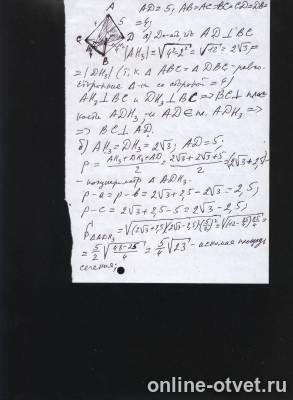 A
4
5
C
D
B
AD=5; AB=AC=BC=CD=DB=
=4;
а) Док-ать, что AD⊥BC
|AH₃|=√4²-2²=√12=2√3=
=|DH₃| (т.к. Δ ABC = Δ DBC - равно-
сторонние Δ-и со стороной = 4)
AH₃⊥BC и DH₃⊥BC => BC⊥ плос-
кости ADH₃, и AD∈ пл. ADH₃ =>
=> BC⊥AD.
б) AH₃=DH₃=2√3; AD=5;
p = (AH₃+DH₃+AD)/2 = (2√3+2√3+5)/2 = (2√3+2,5)
- полупериметр Δ ADH₃.
p-a=p-b=2√3+2,5-2√3=2,5;
p-c=2√3+2,5-5=2√3-2,5;
= 5/2 √((48-25)/4) = 5/4 √23 - искомая площадь
сечения;
online-otvet.ru